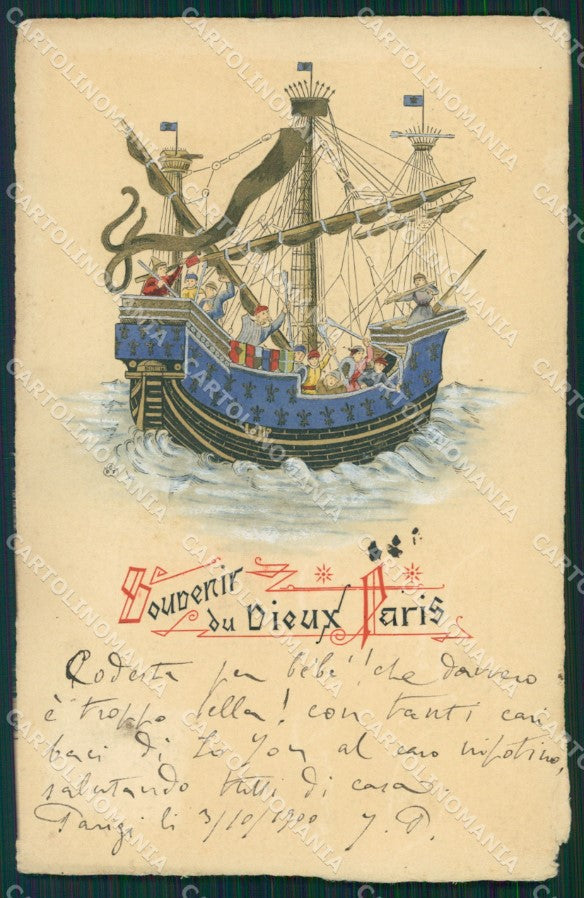 Souvenir
du Vieux Paris
Codesta per bébé!! che davvero
è troppo bella! con tanti cari
baci di al caro nipotino,
salutando tutti di casa.
Parigi li 3/10/1900 J. P.
CARTOLINOMANIA